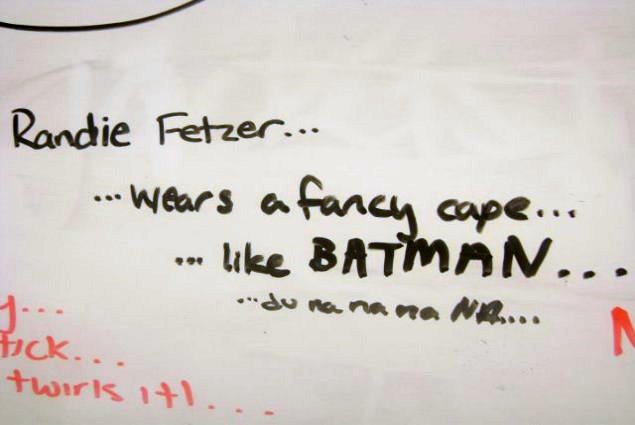 Randie Fetzer...
...wears a fancy cape...
... like BATMAN...
...du na na na NA....
y...
tick...
twirls it!...
N